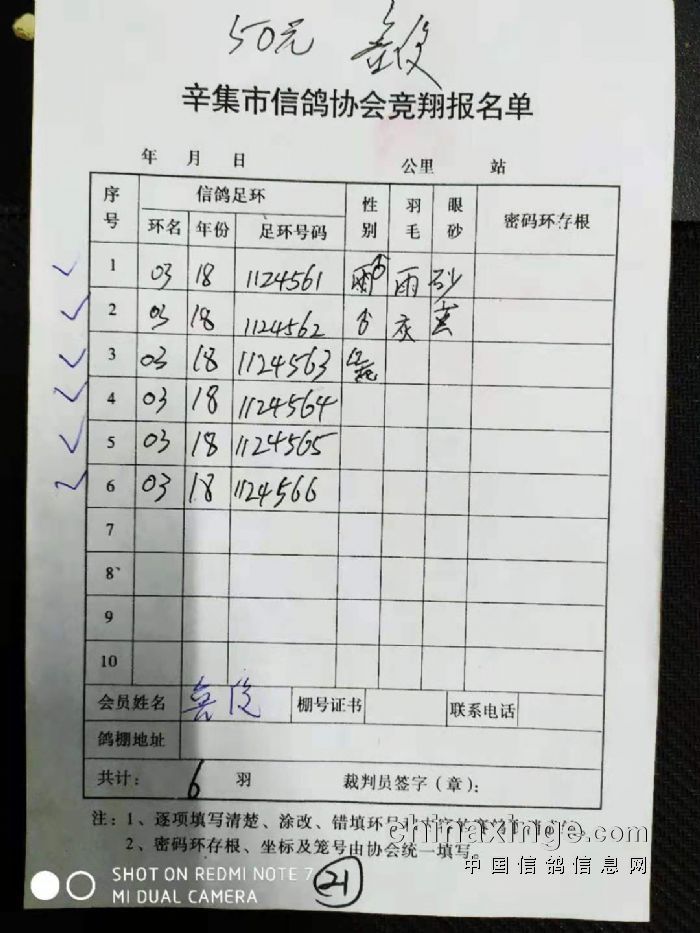 50元
辛集市信鸽协会竞翔报名单
年 月 日 公里 站
序号 信鸽足环 性别 羽毛 眼砂 密码环存根
环名 年份 足环号码
1 03 18 1124561 雨 砂
2 03 18 1124562 灰 黄
3 03 18 1124563
4 03 18 1124564
5 03 18 1124565
6 03 18 1124566
7
8
9
10
会员姓名 棚号证书 联系电话
鸽棚地址
共计: 6 羽 裁判员签字(章):
注:1、逐项填写清楚、涂改、错填环号
2、密码环存根、坐标及笼号由协会统一填写。
chinaxinge.com
中国信鸽信息网
SHOT ON REDMI NOTE 7
MI DUAL CAMERA
21